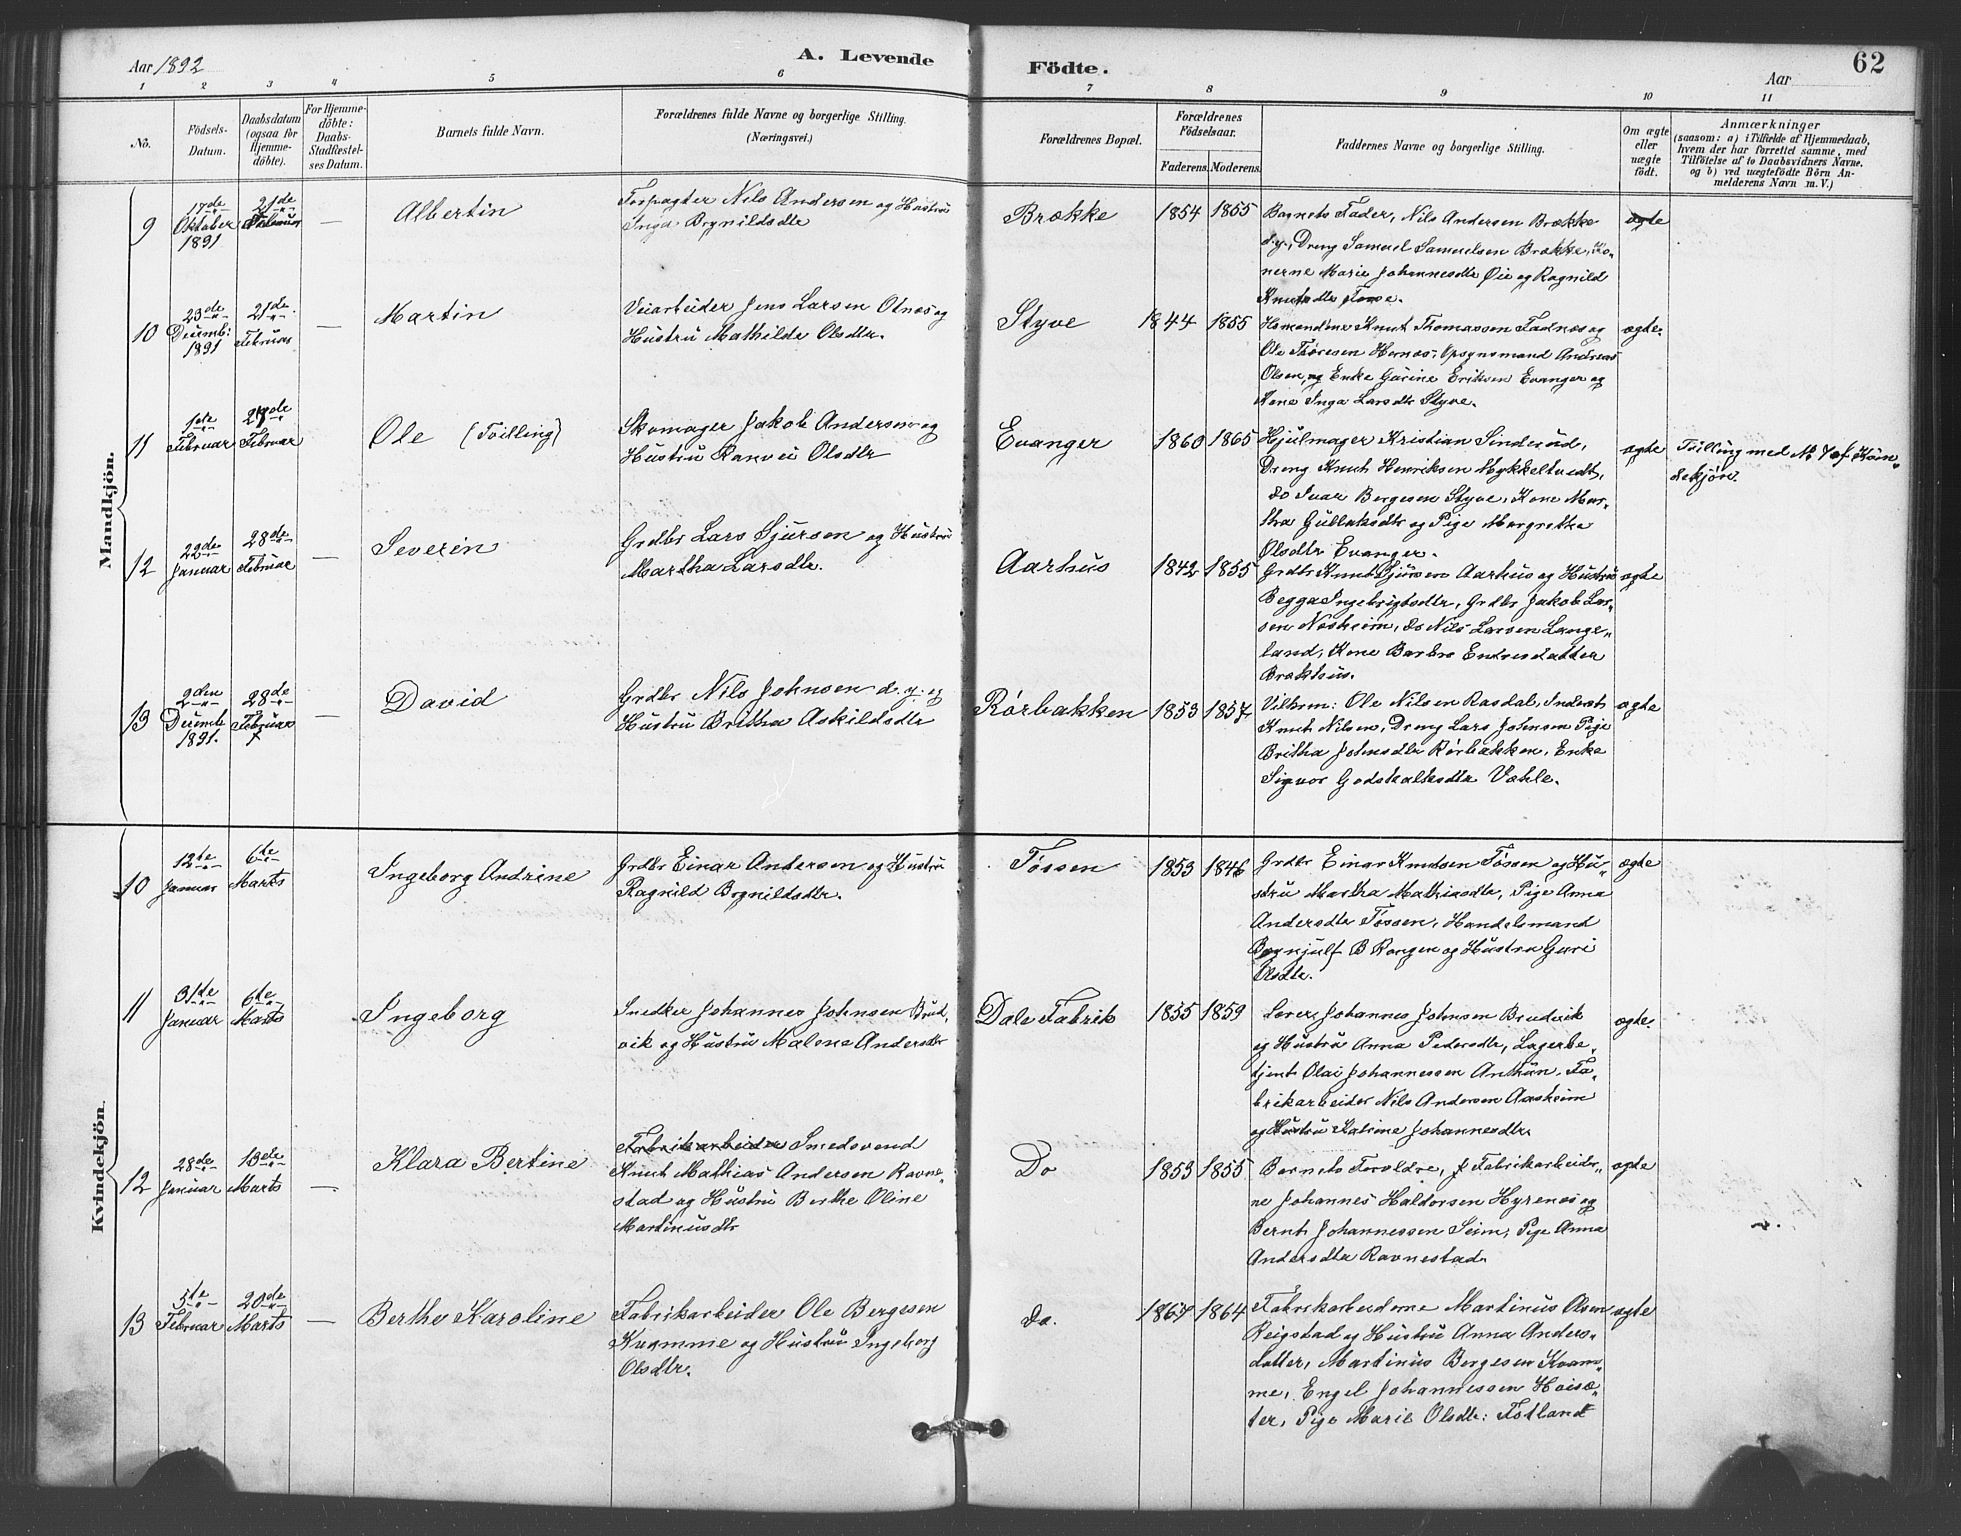 Aar 1892
A. Levende
Födte.
Aar
62
1 2 3 4 5 6 7 8 9 10 11
No.
Födsels-
Datum.
Daabsdatum
(ogsaa for
Hjemme-
döbte).
For Hjemme-
döbte:
Daabs-
Stadfæstel-
ses Datum.
Barnets fulde Navn.
Forældrenes fulde Navne og borgerlige Stilling.
(Næringsvei.)
Forældrenes Bopæl.
Forældrenes
Födselsaar.
Faderens. Moderens.
Faddernes Navne og borgerlige Stilling.
Om ægte
eller
uægte
födt.
Anmærkninger
(saasom: a) i Tilfælde af Hjemmedaab,
hvem der har forrettet samme, med
Tilföielse af to Daabsvidners Navne.
og b) ved uægtefödte Börn An-
melderens Navn m. V.)
Mandkjön.
9
17de
Oktober
1891
21de
Februar
—
Albertin
Forpagter Nils Andersen og Hustru
Inga Brynildsdtr
Brække
1854 1855
Barnets Fader, Nils Andersen Brække
d.y., Dreng Samuel Samuelsen Brække, Ko-
nerne Marie Johannesdtr Øie og Ragnild
Knutsdtr Fosse.
ægte
10
23de
Decemb:
1891
21de
Februar
—
Martin
Veiarbeider Jens Larsen Otnes og
Hustru Mathilde Olsdtr.
Styve
1844 1855
Husmændene Knut Thomassen Fadnes og
Ole Thoresen Hernes, Opsynsmand Andreas
Olsen, og Enke Gurine Eriksen Evanger og
Kone Inga Larsdtr Styve.
ægte.
11
1ste
Februar
27de
Februar
Ole (Tvilling)
Skomager Jakob Andersen og
Hustru Ranvei Olsdtr
Evanger
1860 1865
Hjulmager Kristian Sinderud,
Dreng Knut Henriksen Mykkeltvedt,
do Ivar Bergesen Styve, Kone Mar-
tha Gullaksdtr og Pige Margrethe
Olsdtr Evanger.
ægte
Tvilling med No 7 af Kvin-
dekjøn.
12
22de
Januar
28de
Februar
—
Severin
Grdbr Lars Sjursen og Hustru
Martha Larsdtr.
Aarhus
1842 1855
Grdbr Knut Sjursen Aarhus og Hustru
Begga Ingebrigtsdtr, Grdbr Jakob Lar-
sen Næsheim, do Nils Larsen Lange-
land, Kone Barbro Endresdatter
Brækhus.
ægte
13
9den
Decemb
1891.
28de
Februar
—
David
Grdbr Nils Johnsen d. y. og
Hustru Britha Askildsdtr
Rørbakken
1853 1857
Vilhem: Ole Nilsen Rasdal, Inderst
Knut Nilsen, Dreng Lars Johnsen Pige
Britha Johnsdtr Rørbakken, Enke
Signor Godskalksdtr Vahle.
ægte
Kvindekjön.
10
12te
Januar
6te
Marts
Ingeborg Andrine
Grdbr Einar Andersen og Hustru
Ragnild Brynildsdtr.
Fossen
1853 1846
Grdbr Einar Knudsen Fossen og Hu-
stru Martha Mathiasdtr, Pige Anna
Andersdtr Fossen, Handelsmand
Brynjulf B Rongen og Hustru Guri
Olsdtr.
ægte
11
31te
Januar
6te
Marts
Ingeborg
Snedker Johannes Johnsen Brud-
vik og Hustru Malene Andersdtr
Dale Fabrik
1855 1859
Lærer Johannes Johnsen Brudvik
og Hustru Anna Pedersdtr, Lagerbe-
tjent Olai Johannessen Anthun, Fa-
brikarbeider Nils Andersen Aasheim
og Hustru Katrine Johannesdtr
ægte.
12
28de
Januar
13de
Marts
—
Klara Bertine
Fabrikarbeider Smedsvend
Knut Mathias Andersen Ravne-
stad og Hustru Berthe Oline
Martinusdtr
Do
1853 1855
Barnets Foreldre, Fabrikarbeider-
ne Johannes Haldorsen Hyrenes og
Bernt Johannessen Seim, Pige Anna
Andersdtr Ravnestad.
ægte
13
5te
Februar
20de
Marts
—
Berthe Karoline
Fabrikarbeider Ole Bergesen
Kvamme og Hustru Ingeborg
Olsdtr.
do.
1867 1864
Fabrikarbeiderne Martinus Olsen
Reigstad og Hustru Anna Anders-
datter, Martinus Bergesen Kvam-
me, Engel Johannessen Høisæ-
ter, Pige Marie Olsdtr: Fotland
ægte